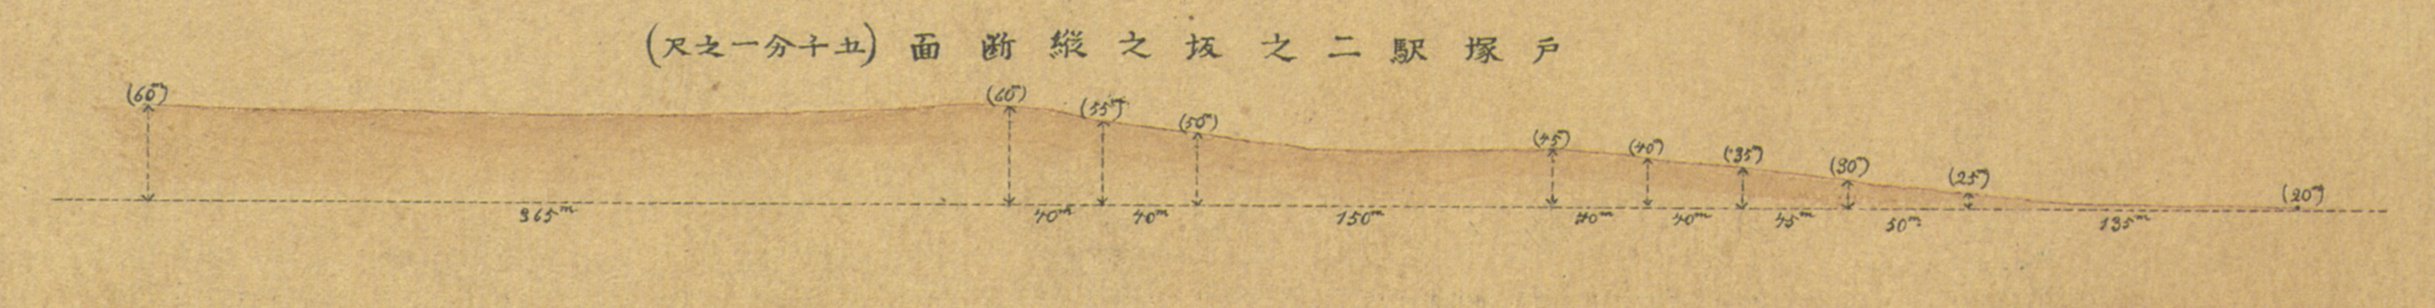 戸塚駅二之坂之縦断面(五千分一之尺)
(60m) (60m) (55m) (50m) (45m) (40m) (35m) (30m) (25m) (20m)
365m 40m 40m 150m 40m 40m 45m 50m 135m